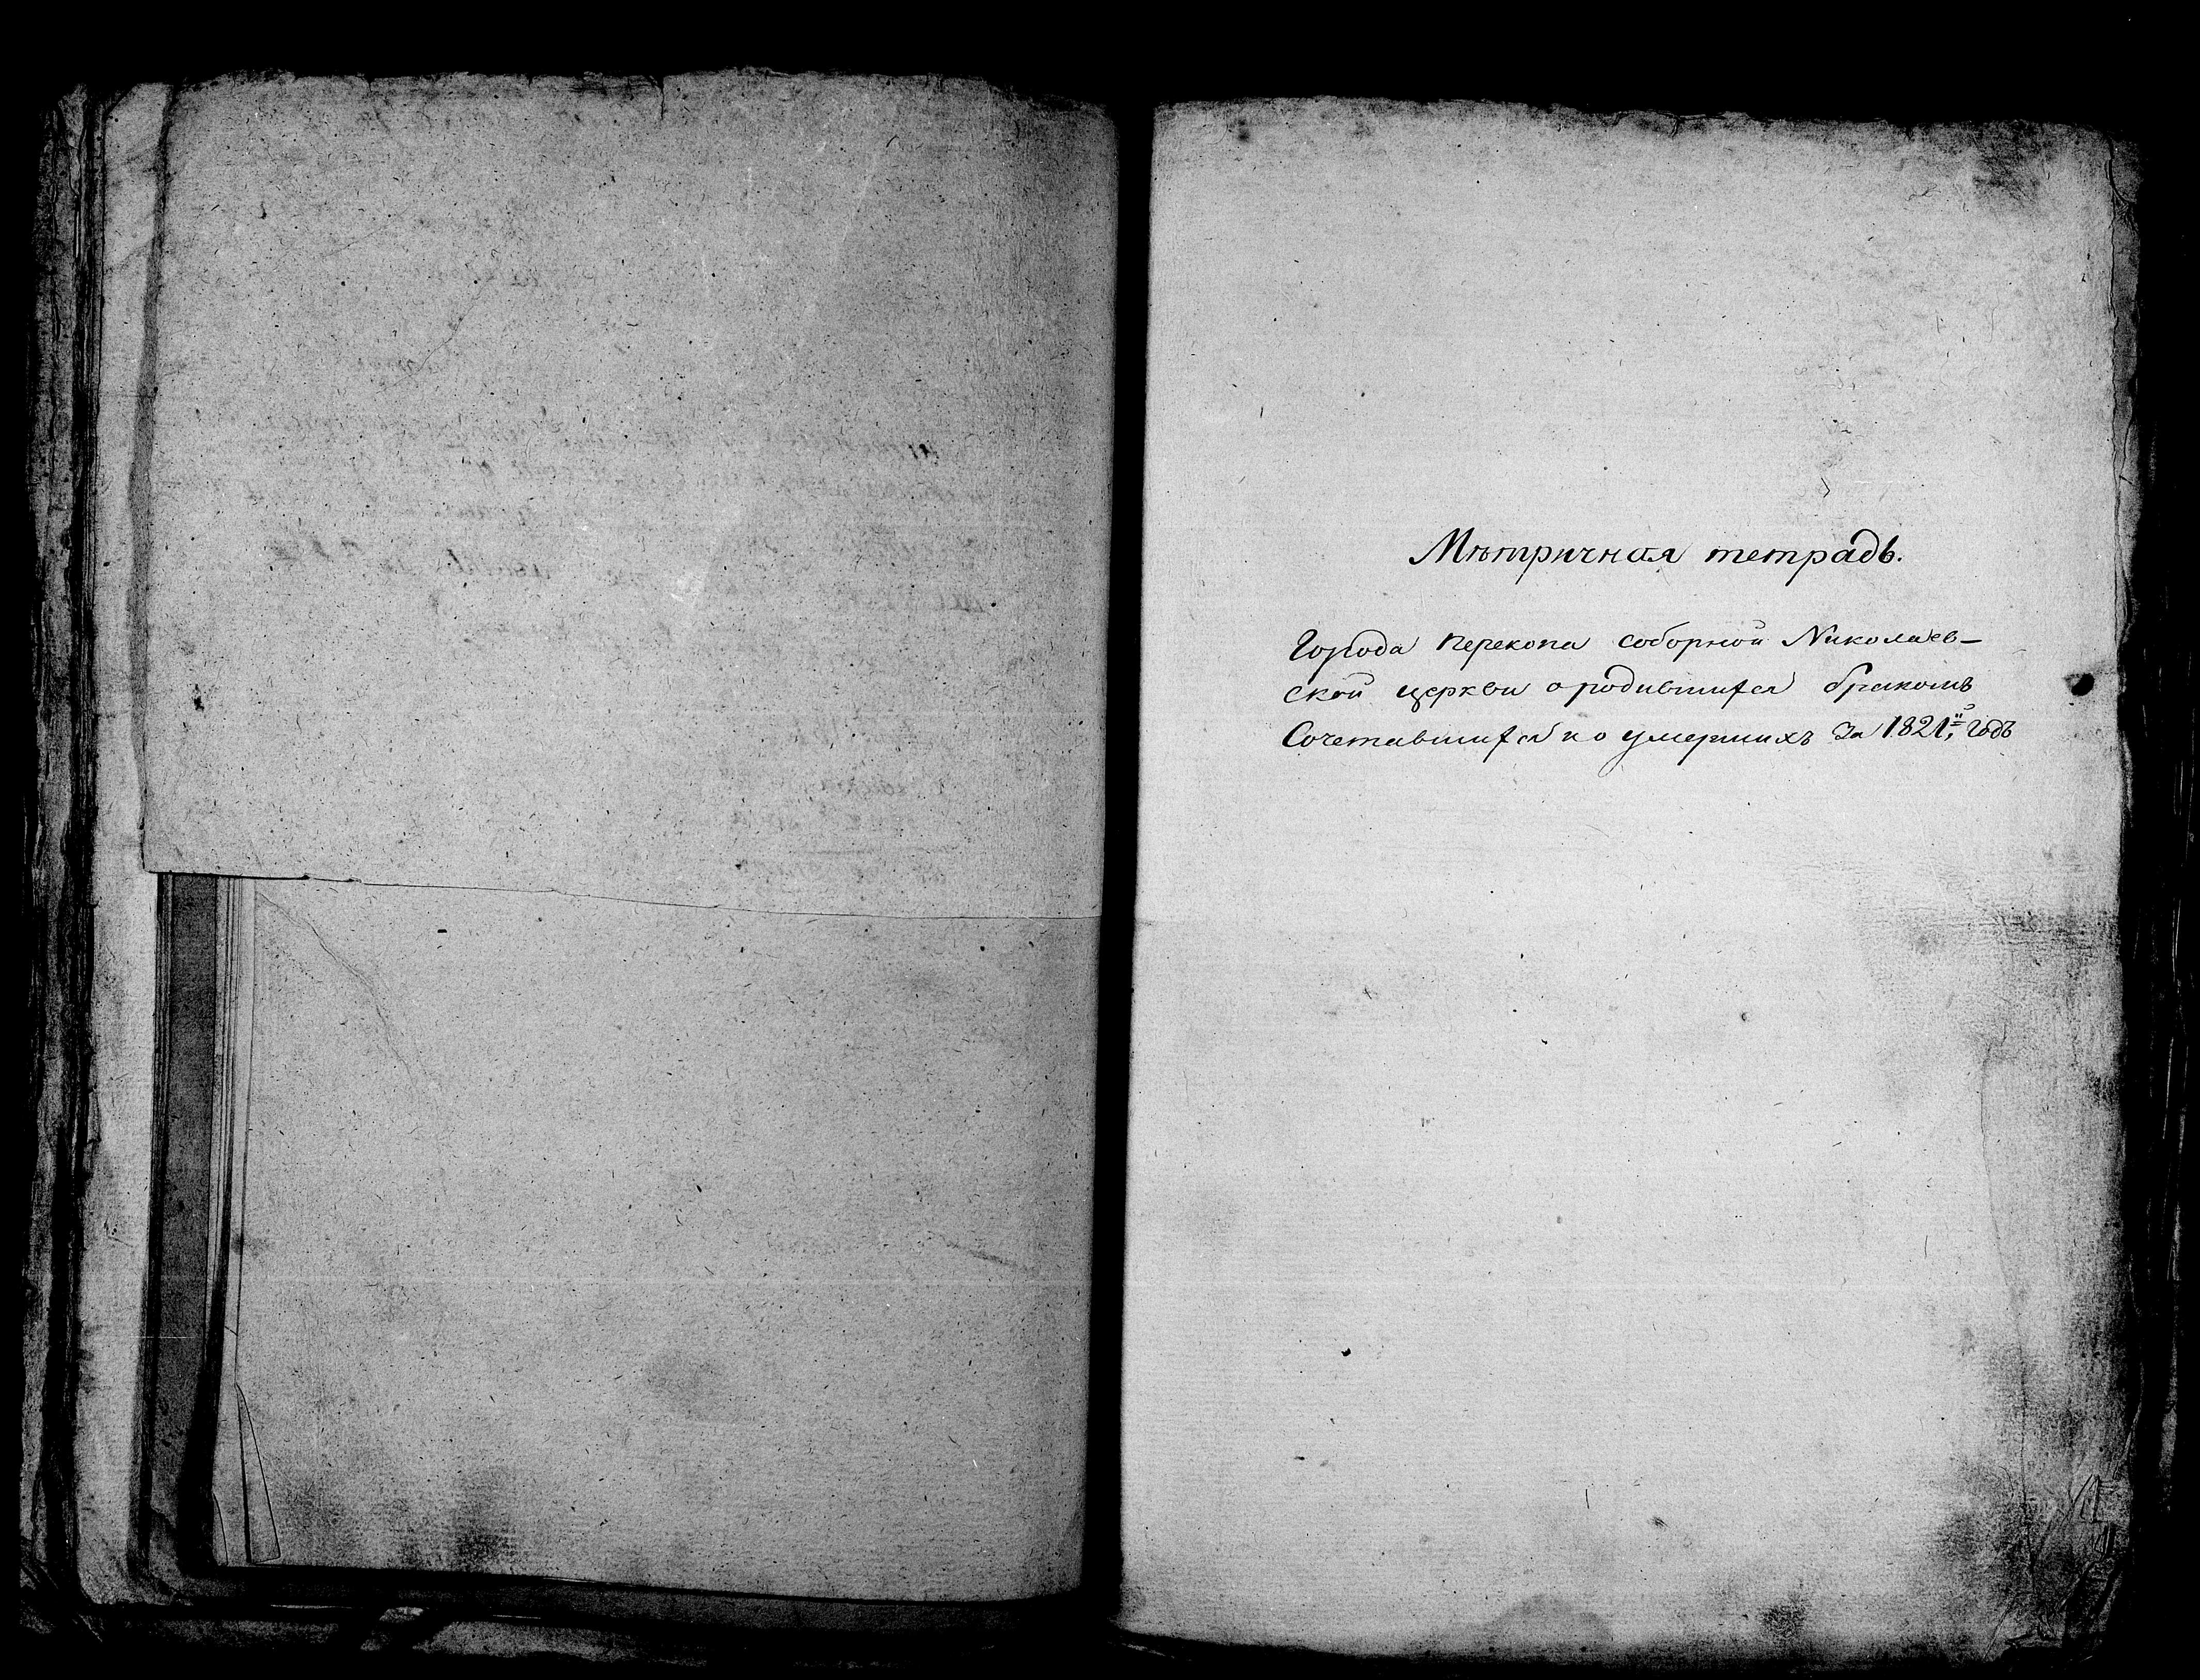 Мѣтричная тетрадь.
Города Перекопа соборной Николаев-
ской церкви о родившихся бракомъ
Сочетавшихся и о умершихъ За 1821й годъ